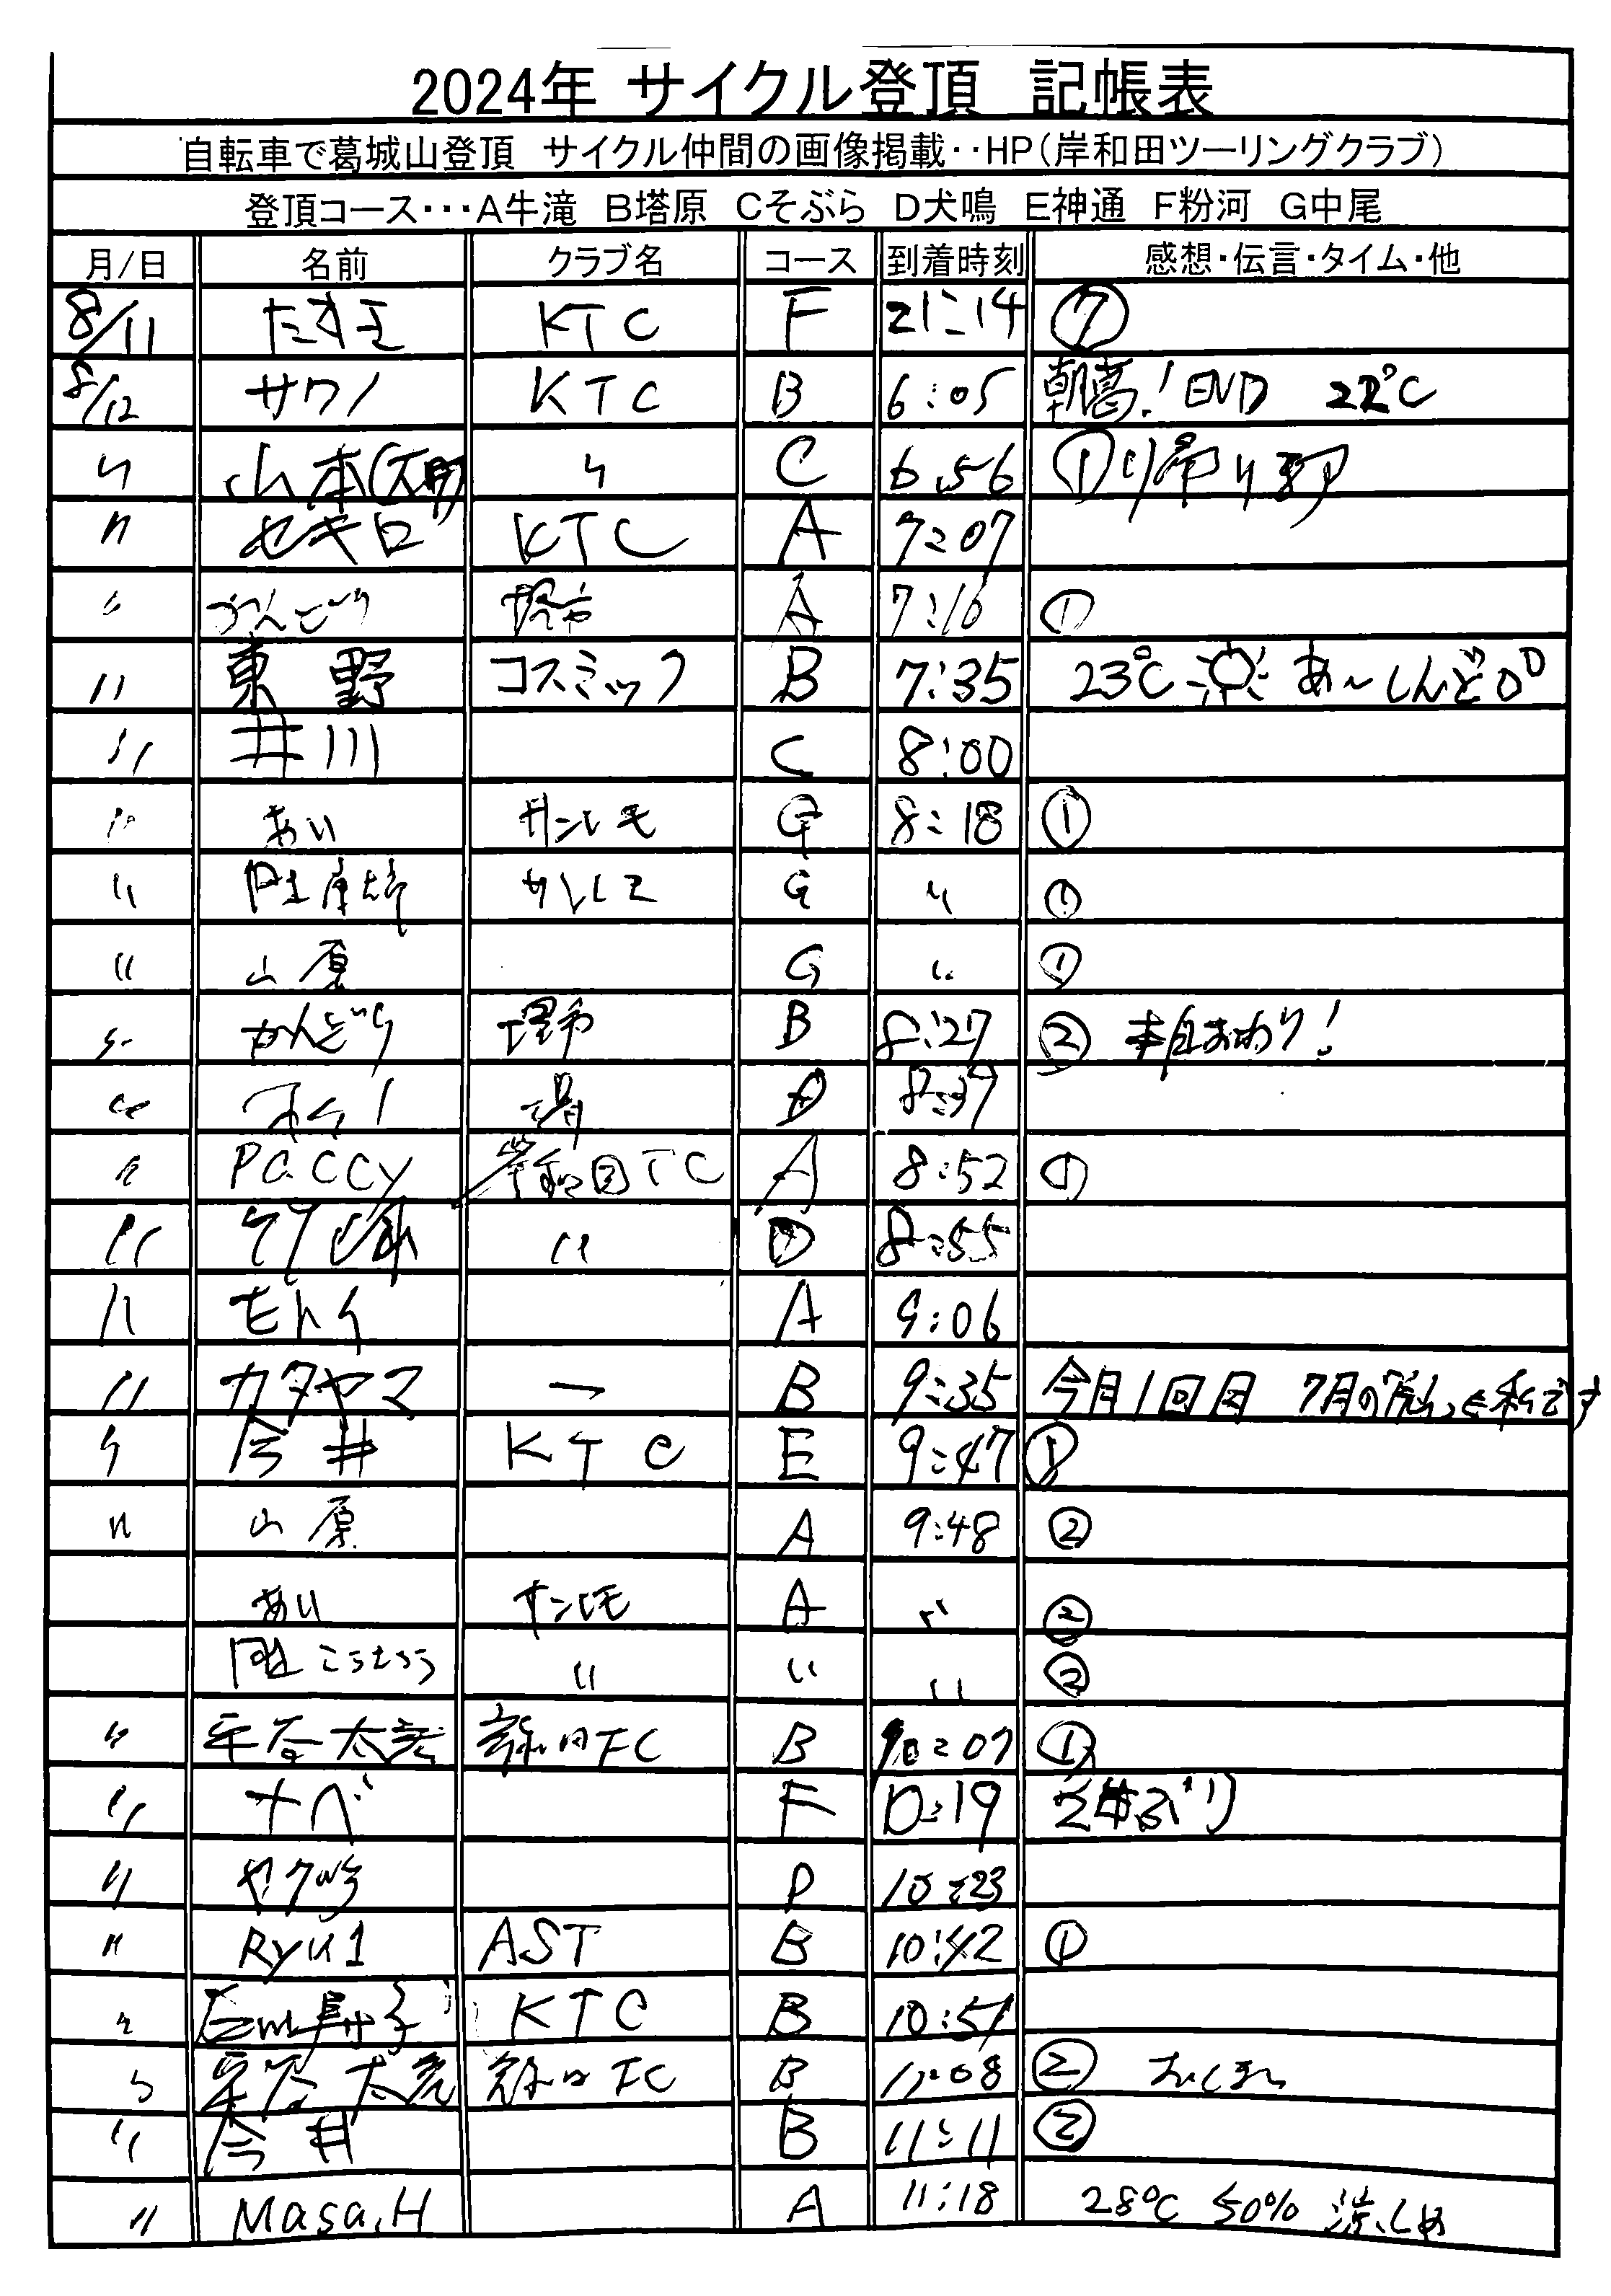 2024年 サイクル登頂 記帳表
自転車で葛城山登頂 サイクル仲間の画像掲載‥HP(岸和田ツーリングクラブ)
登頂コース・・・A牛滝 B塔原 Cそぶら D犬鳴 E神通 F粉河 G中尾
月/日 名前 クラブ名 コース 到着時刻 感想・伝言・タイム・他
8/11 KTC F 21:14 ⑦
8/12 サワノ KTC B 6:05 朝葛! END 22℃
〃 山本 〃 C 6:56 ①
〃 セキロ KTC A 7:07
〃 かんどり 堺市 A 7:16 ①
〃 東野 コスミック B 7:35 23℃ あ〜しんど
〃 井川 C 8:00
〃 あい サンレモ G 8:18 ①
〃 サンレモ G 〃 ①
〃 山原 G 〃 ①
〃 かんどり 堺市 B 8:27 ② 本日おわり!
〃 堺 D 8:37
〃 PaCCy 岸和田TC A 8:52 ①
〃 〃 D 8:55
〃 モトイ A 9:06
〃 カタヤマ ー B 9:35 今月1回目 7月の 私です
〃 今井 KTC E 9:47 ①
〃 山原 A 9:48 ②
あい サンレモ A 〃 ②
こうたろう 〃 〃 〃 ②
〃 岸和田TC B 10:07 ①
〃 ナベ F 10:19 2年ぶり
〃 D 10:23
〃 Ryu1 AST B 10:42 ①
〃 KTC B 10:51
〃 岸和田TC B 11:08 ②
〃 今井 B 11:11 ②
〃 Masa.H A 11:18 28℃ 50% 涼しめ